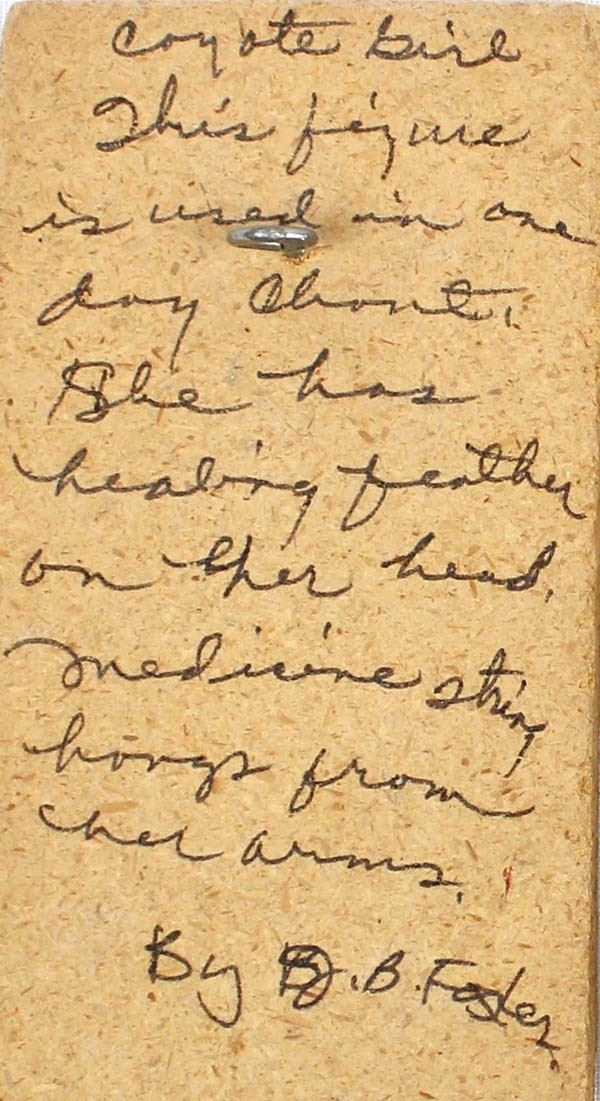 coyote Girl
This figure
is used in one
day Chant.
She has
healing feather
on her head.
medicine string
hangs from
her arms.
By B. Foster.